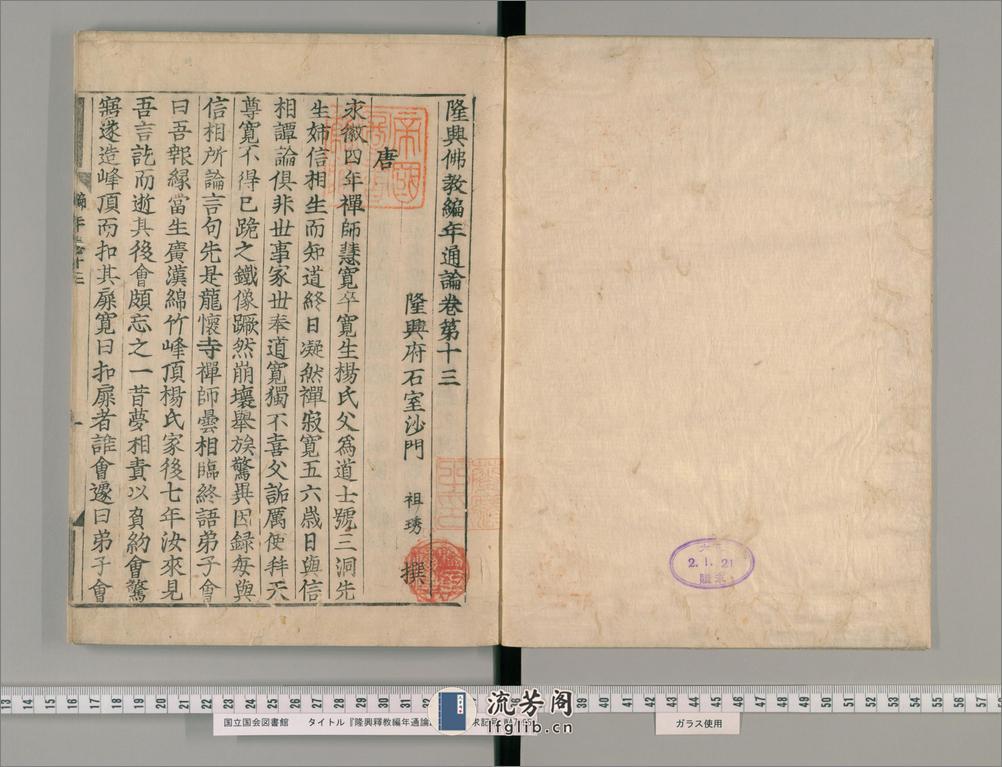 隆興佛教編年通論卷第十三
隆興府石室沙門 祖琇 撰
唐
永徽四年禪師慧寬卒寬生楊氏父爲道士號三洞先
生姊信相生而知道終日凝然禪寂寬五六歲日與信
相譚論俱非世事家世奉道寬獨不喜父詬厲使拜天
尊寬不得已跪之鐵像蹶然崩壞舉族驚異因録每與
信相所論言句先是龍懷寺禪師曇相臨終語弟子會
曰吾報緣當生廣漢綿竹峰頂楊氏家後七年汝來見
吾言訖而逝其後會頗忘之一昔夢相責以負約會驚
寤遂造峰頂而扣其扉寬曰扣扉者誰會邊曰弟子會
2.1.21
国立国会図書館 タイトル『隆興釋教編年通論
ガラス使用
流芳阁
lfglib.cn
13 14 15 16 17 18 19 20 21 22 23 24 25 26 27 28
39 40 41 42 43 44 45 46 47 48 49 50 51 52 53 54 55 56 57